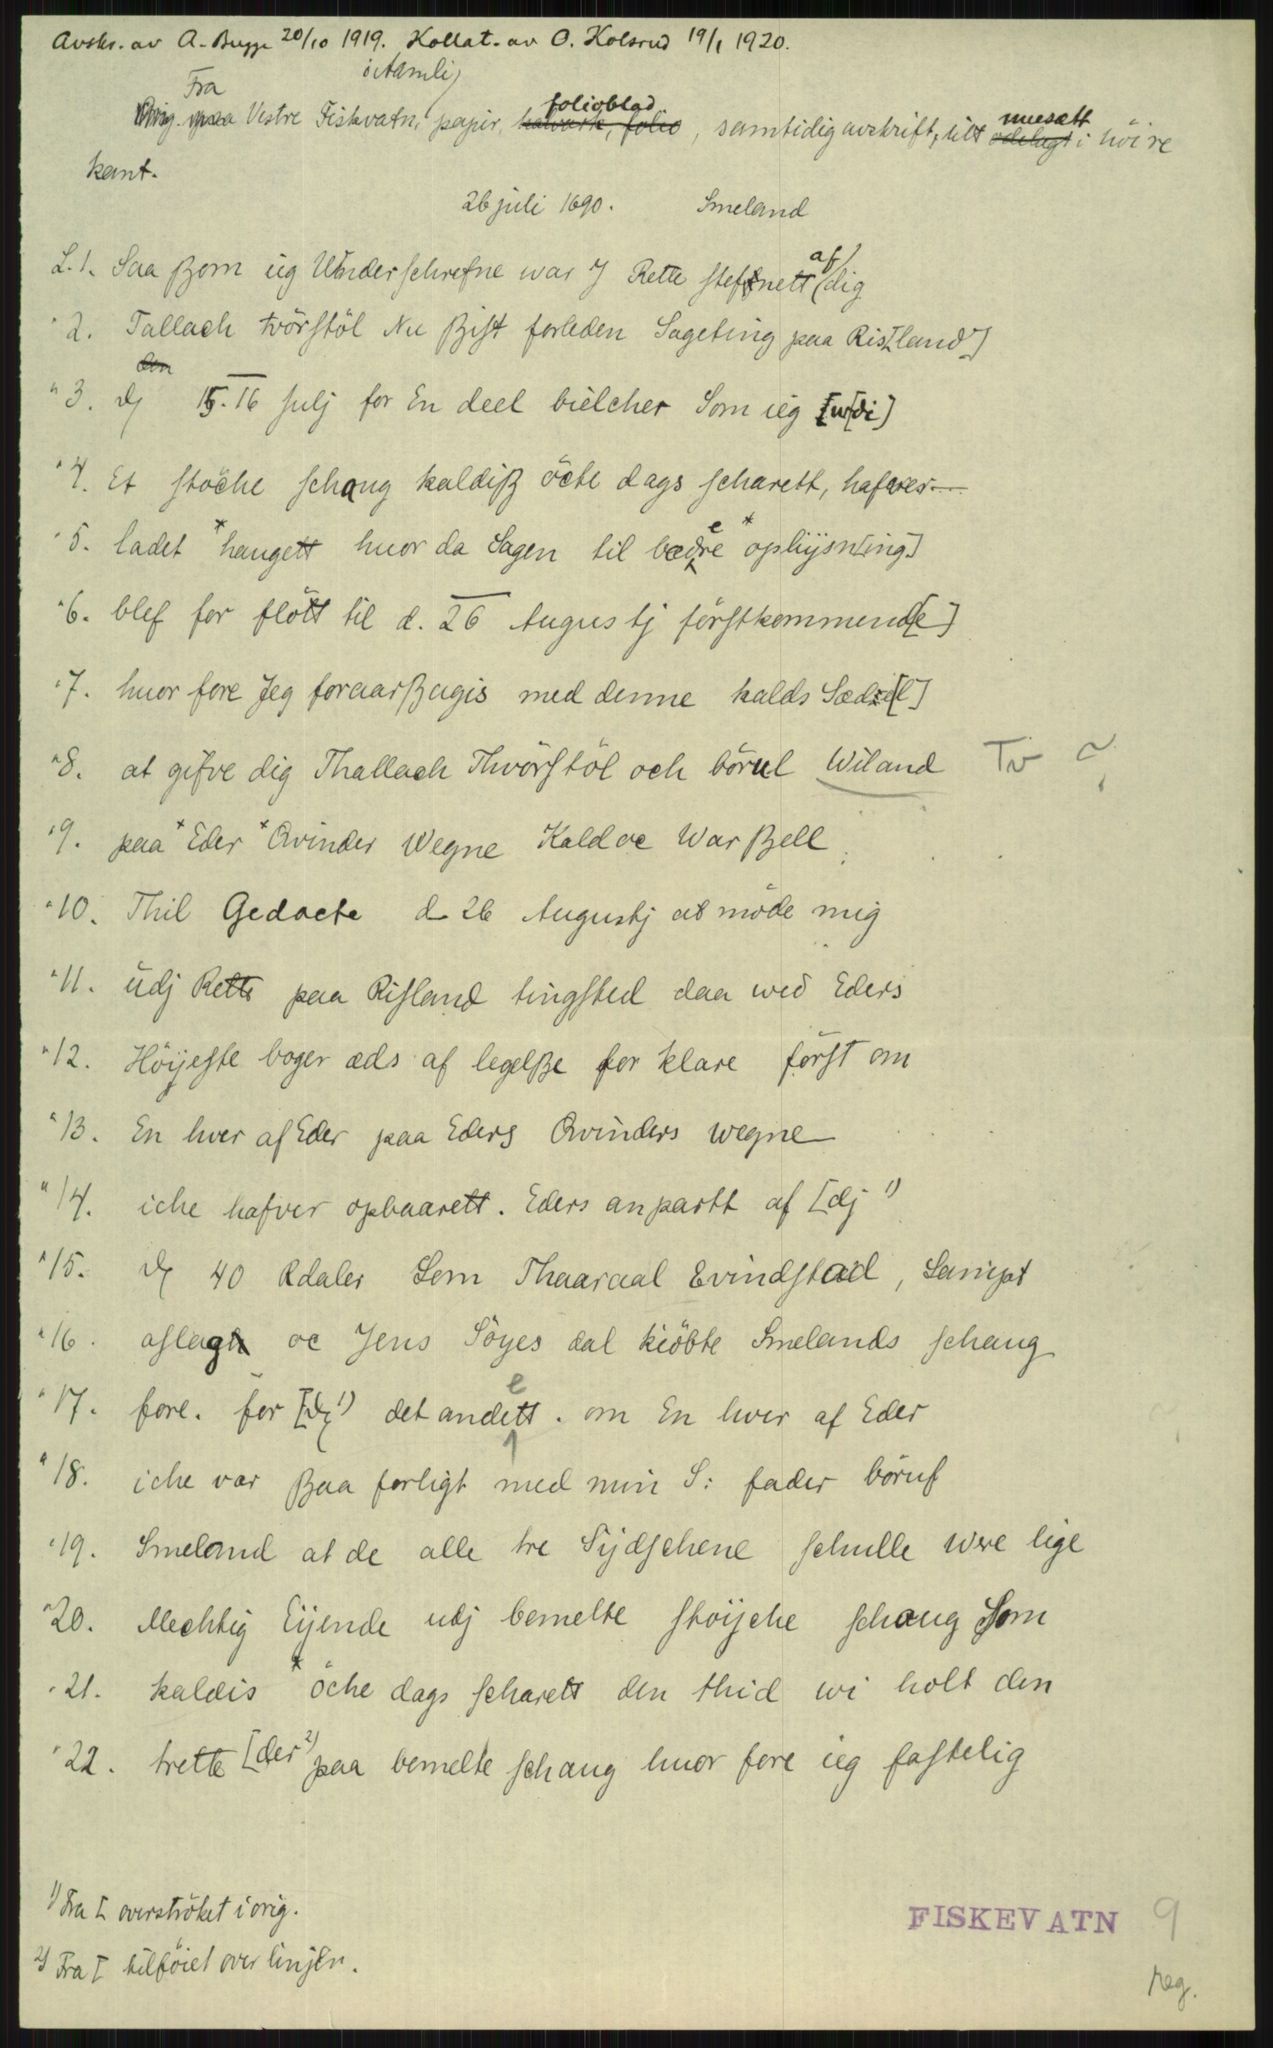 Avskr. av A. Bugge 20/10 1919. Kollat. av O. Kolsrud 19/1 1920.
Fra Vestre Fiskvatn, i Aamli, papir, folioblad, samtidig avskrift, litt musætt i höire
kant.
26 juli 1690. Smeland
L. 1. Saa ßom iig Underschrefne war J Rette stefnett af dig
" 2. Tallach tvörstöl Nu ßist forleden Sageting paa Ris[land]
" 3. dj 15. 16 Julj for En deel bielcher Som iég [udi]
" 4. Et stöche schaug kaldiß öcte dags scharett, hafver
" 5. ladet *haugett huor da Sagen til bedre *opliijsn[ing]
" 6. blef for flött til d. 26 Augustj förstkommend[e]
" 7. huor fore Jeg foraarßagis med denne kalds Sæd[el]
" 8. at gifve dig Thallach Thvörstöl och börul Wiland Tv ?
" 9. paa *Eder *Qvinder Wegne Kald oc War ßell
" 10. Thil Gedacte d 26 Augustj at möde mig
" 11. udj Rette paa Risland tingsted daa wed Eders
" 12. Höijeste boger æds af legelße for klare först om
" 13. En hver af Eder paa Eders Qvinders wegne
" 14. iche hafver opbaarett. Eders anpartt af [dj 1)
" 15. dj 40 Rdaler Som Thaaraal Evindstad, Sampt
" 16. aslag oc Jens Söyes dal kiöbte Smelands schaug
" 17. fore. för [dj 1) det andett. om En hver af Eder
" 18. iche var ßaa forligt med min S: fader böruf
" 19. Smeland at de alle tre Sijdschene schulle were lige
" 20. Mechtig Eijende udj bemelte stöijche schaug Som
" 21. kaldis *öche dags scharett den thid wi holt den
" 22. trette [der 2) paa bemelte schaug huor fore iég fastelig
1) Fra [ overströket i orig.
2) Fra [ tilföiet over linjen.
FISKEVATN 9
reg.